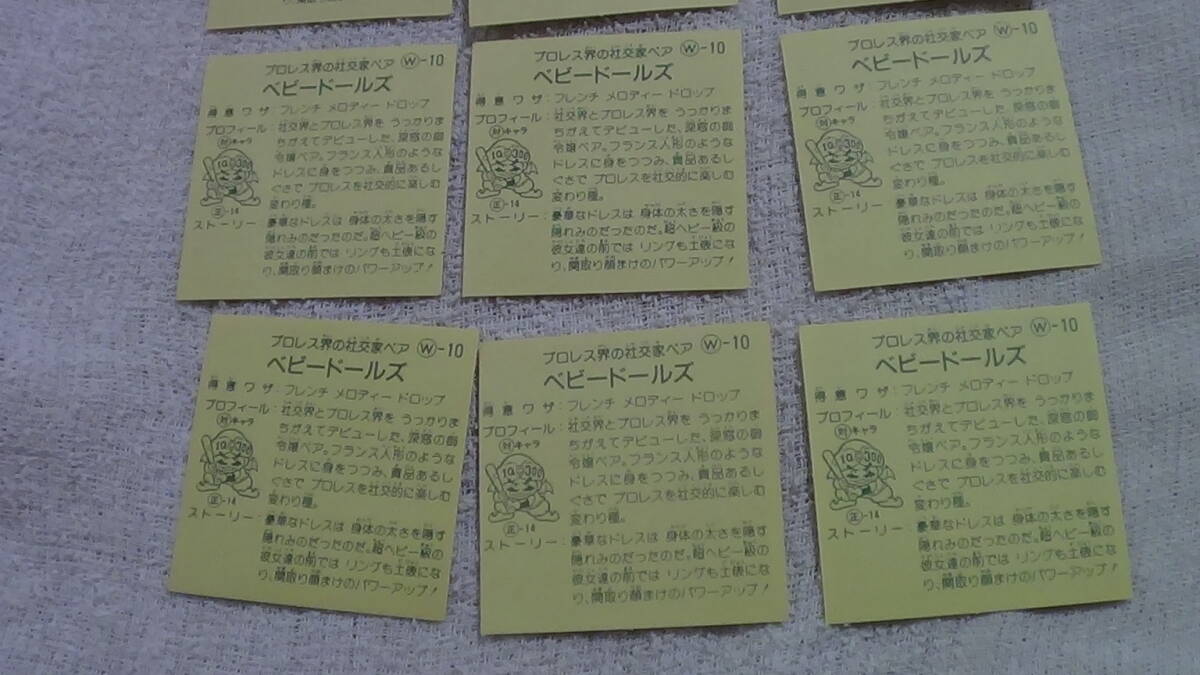 プロレス界の社交家ペア Ⓦ-10
ベビードールズ
得意ワザ:フレンチ メロディー ドロップ
プロフィール:社交界とプロレス界を うっかりま
ちがえてデビューした、深窓の御
令嬢ペア。フランス人形のような
ドレスに身をつつみ、貴品あるし
ぐさで プロレスを社交的に楽しむ
変わり種。
対キャラ
IQ 300
正-14
ストーリー:豪華なドレスは 身体の太さを隠す
隠れみのだったのだ。超ヘビー級の
彼女達の前では リングも土俵にな
り、関取り顔まけのパワーアップ!
プロレス界の社交家ペア Ⓦ-10
ベビードールズ
得意ワザ:フレンチ メロディー ドロップ
プロフィール:社交界とプロレス界を うっかりま
ちがえてデビューした、深窓の御
令嬢ペア。フランス人形のような
ドレスに身をつつみ、貴品あるし
ぐさで プロレスを社交的に楽しむ
変わり種。
対キャラ
IQ 300
正-14
ストーリー:豪華なドレスは 身体の太さを隠す
隠れみのだったのだ。超ヘビー級の
彼女達の前では リングも土俵にな
り、関取り顔まけのパワーアップ!
プロレス界の社交家ペア Ⓦ-10
ベビードールズ
得意ワザ:フレンチ メロディー ドロップ
プロフィール:社交界とプロレス界を うっかりま
ちがえてデビューした、深窓の御
令嬢ペア。フランス人形のような
ドレスに身をつつみ、貴品あるし
ぐさで プロレスを社交的に楽しむ
変わり種。
対キャラ
IQ 300
正-14
ストーリー:豪華なドレスは 身体の太さを隠す
隠れみのだったのだ。超ヘビー級の
彼女達の前では リングも土俵にな
り、関取り顔まけのパワーアップ!
プロレス界の社交家ペア Ⓦ-10
ベビードールズ
得意ワザ:フレンチ メロディー ドロップ
プロフィール:社交界とプロレス界を うっかりま
ちがえてデビューした、深窓の御
令嬢ペア。フランス人形のような
ドレスに身をつつみ、貴品あるし
ぐさで プロレスを社交的に楽しむ
変わり種。
対キャラ
IQ 300
正-14
ストーリー:豪華なドレスは 身体の太さを隠す
隠れみのだったのだ。超ヘビー級の
彼女達の前では リングも土俵にな
り、関取り顔まけのパワーアップ!
プロレス界の社交家ペア Ⓦ-10
ベビードールズ
得意ワザ:フレンチ メロディー ドロップ
プロフィール:社交界とプロレス界を うっかりま
ちがえてデビューした、深窓の御
令嬢ペア。フランス人形のような
ドレスに身をつつみ、貴品あるし
ぐさで プロレスを社交的に楽しむ
変わり種。
対キャラ
IQ 300
正-14
ストーリー:豪華なドレスは 身体の太さを隠す
隠れみのだったのだ。超ヘビー級の
彼女達の前では リングも土俵にな
り、関取り顔まけのパワーアップ!
プロレス界の社交家ペア Ⓦ-10
ベビードールズ
得意ワザ:フレンチ メロディー ドロップ
プロフィール:社交界とプロレス界を うっかりま
ちがえてデビューした、深窓の御
令嬢ペア。フランス人形のような
ドレスに身をつつみ、貴品あるし
ぐさで プロレスを社交的に楽しむ
変わり種。
対キャラ
IQ 300
正-14
ストーリー:豪華なドレスは 身体の太さを隠す
隠れみのだったのだ。超ヘビー級の
彼女達の前では リングも土俵にな
り、関取り顔まけのパワーアップ!